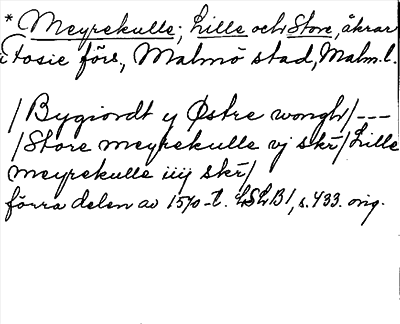 * Meyrekulle; Lille och Store, åkrar
i Fosie förs., Malmö stad, Malm. l.
/Bygiordt y Østre wongh/---
/Store meyrekulle vj skr̄/Lille
meyrekulle iiij skr̄/
förra delen av 1570-t. LSLB1, s. 433. orig.